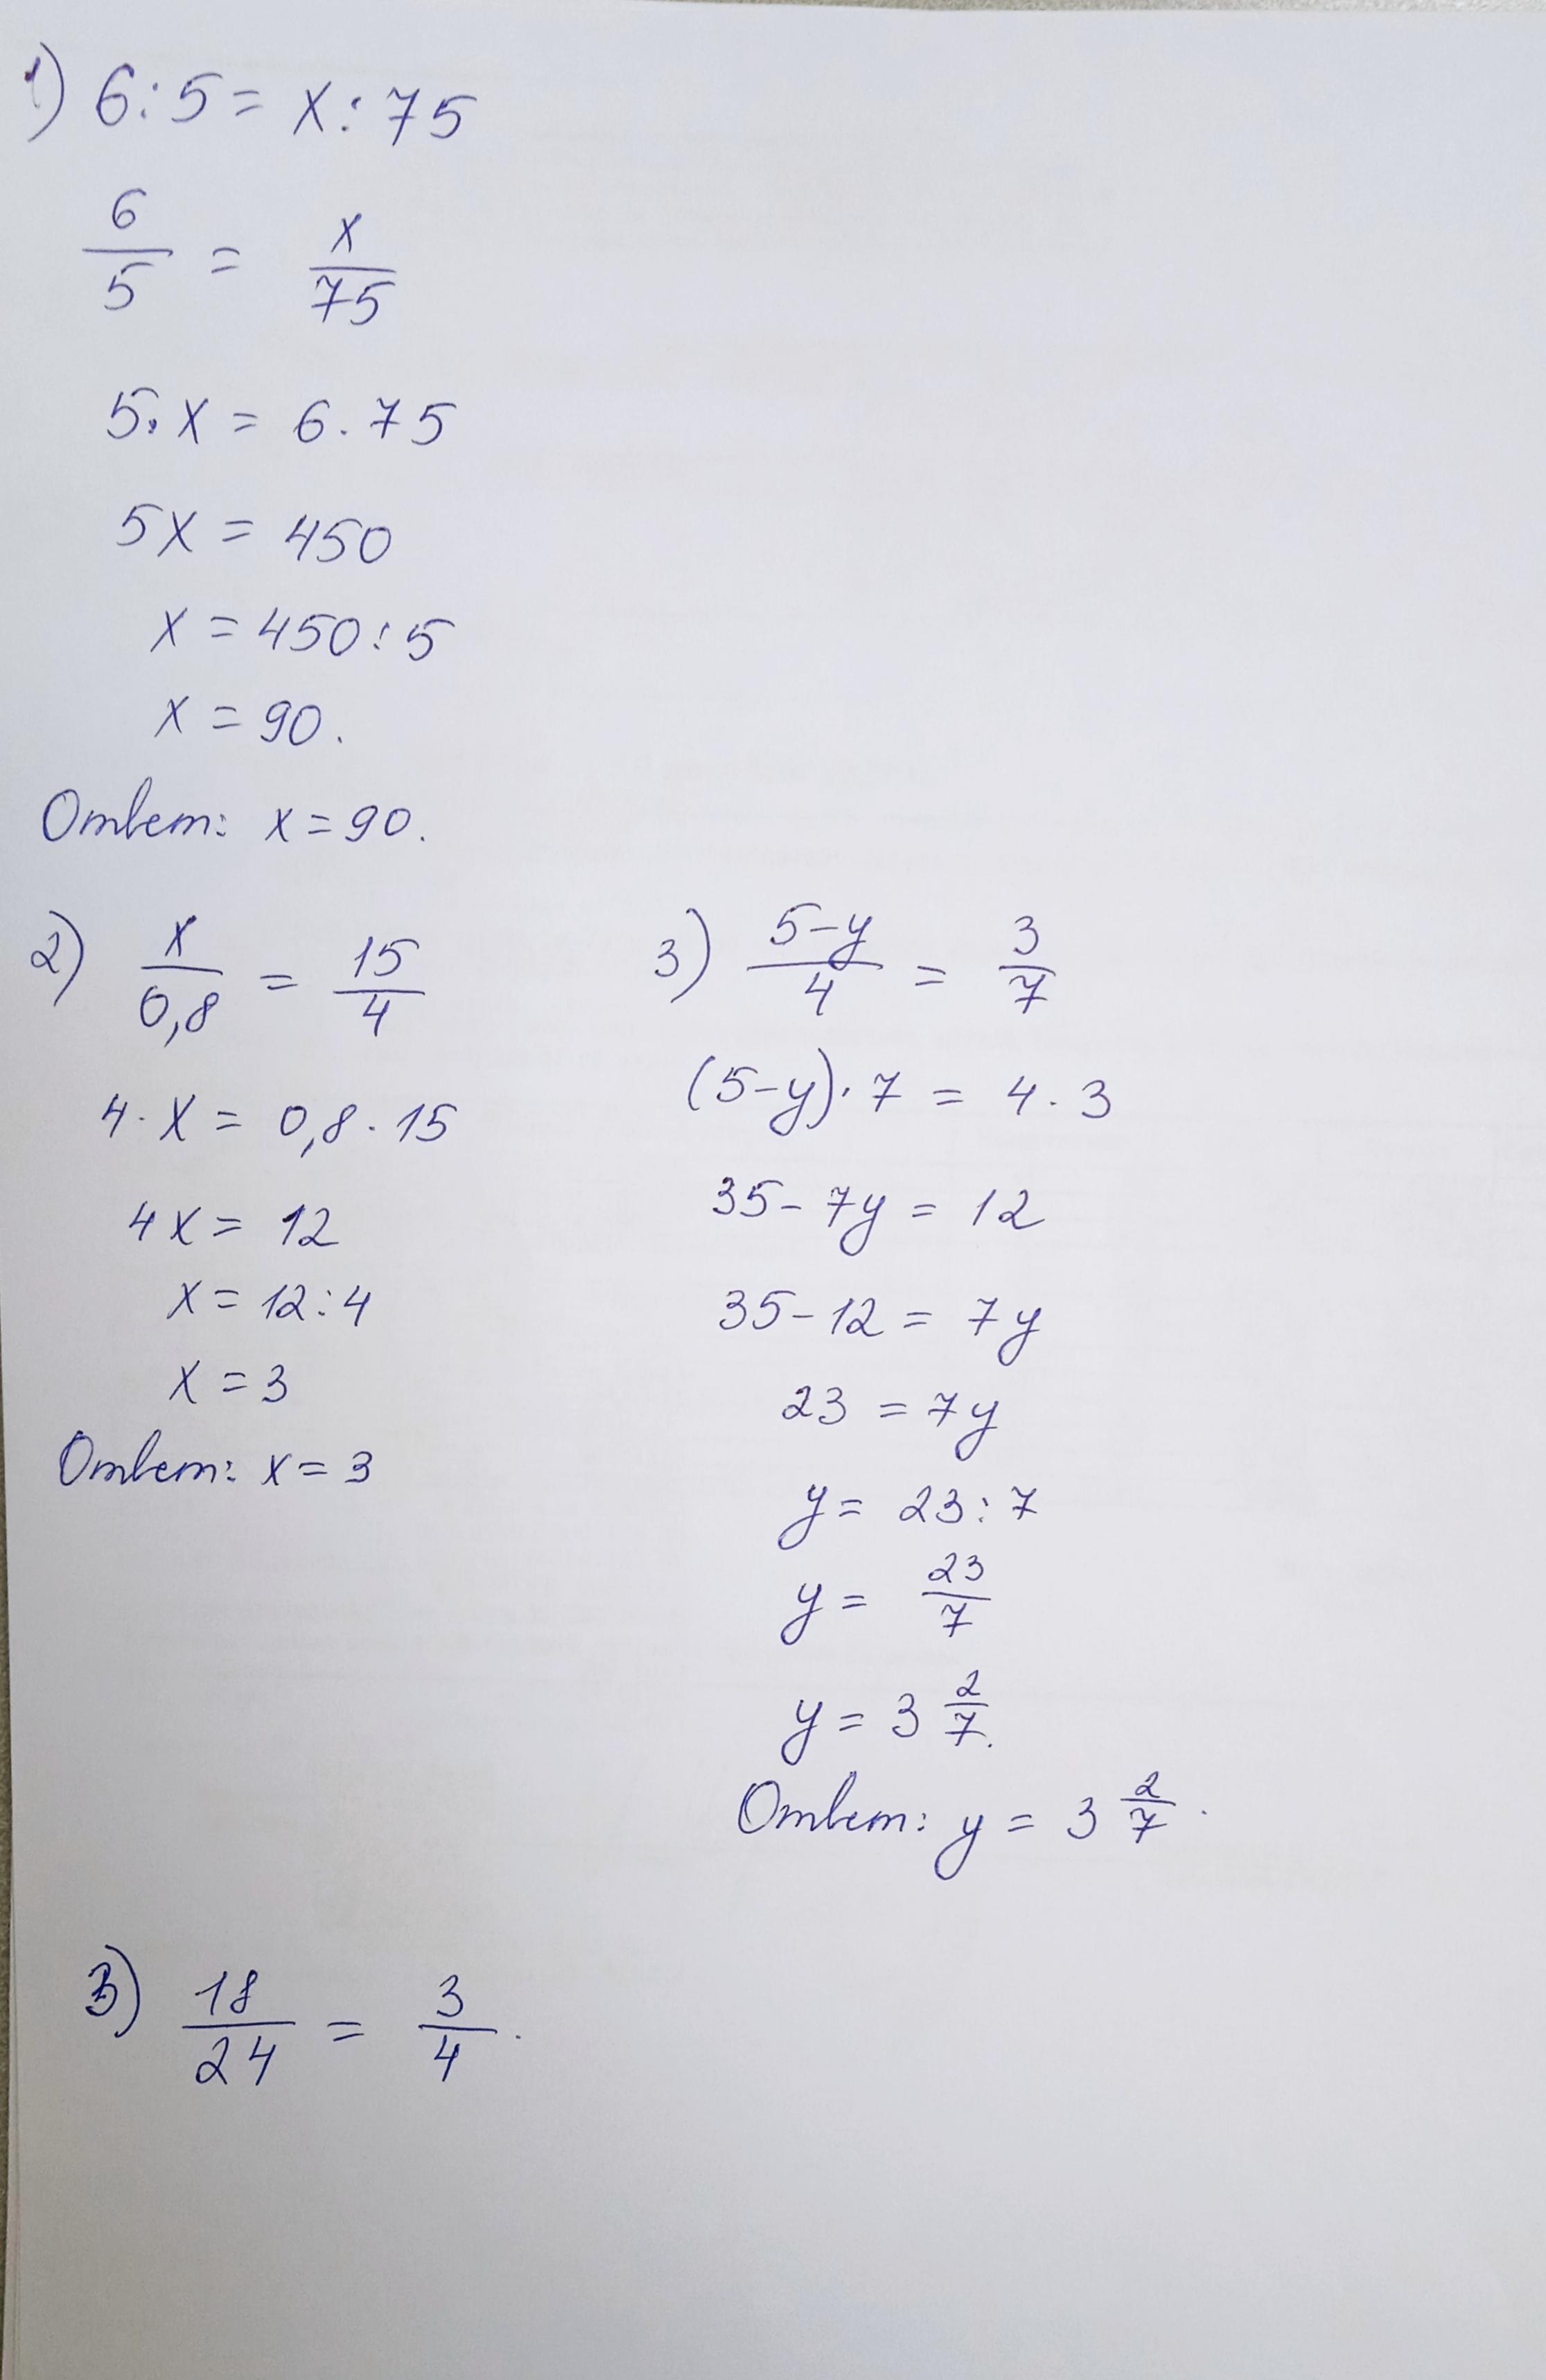 1) 6:5 = x:75
6/5 = x/75
5·x = 6·75
5x = 450
x = 450:5
x = 90.
Ответ: x = 90.
2) x/0,8 = 15/4
4·x = 0,8·15
4x = 12
x = 12:4
x = 3
Ответ: x = 3
3) (5-y)/4 = 3/7
(5-y)·7 = 4·3
35-7y = 12
35-12 = 7y
23 = 7y
y = 23:7
y = 23/7
y = 3 2/7.
Ответ: y = 3 2/7.
3) 18/24 = 3/4.